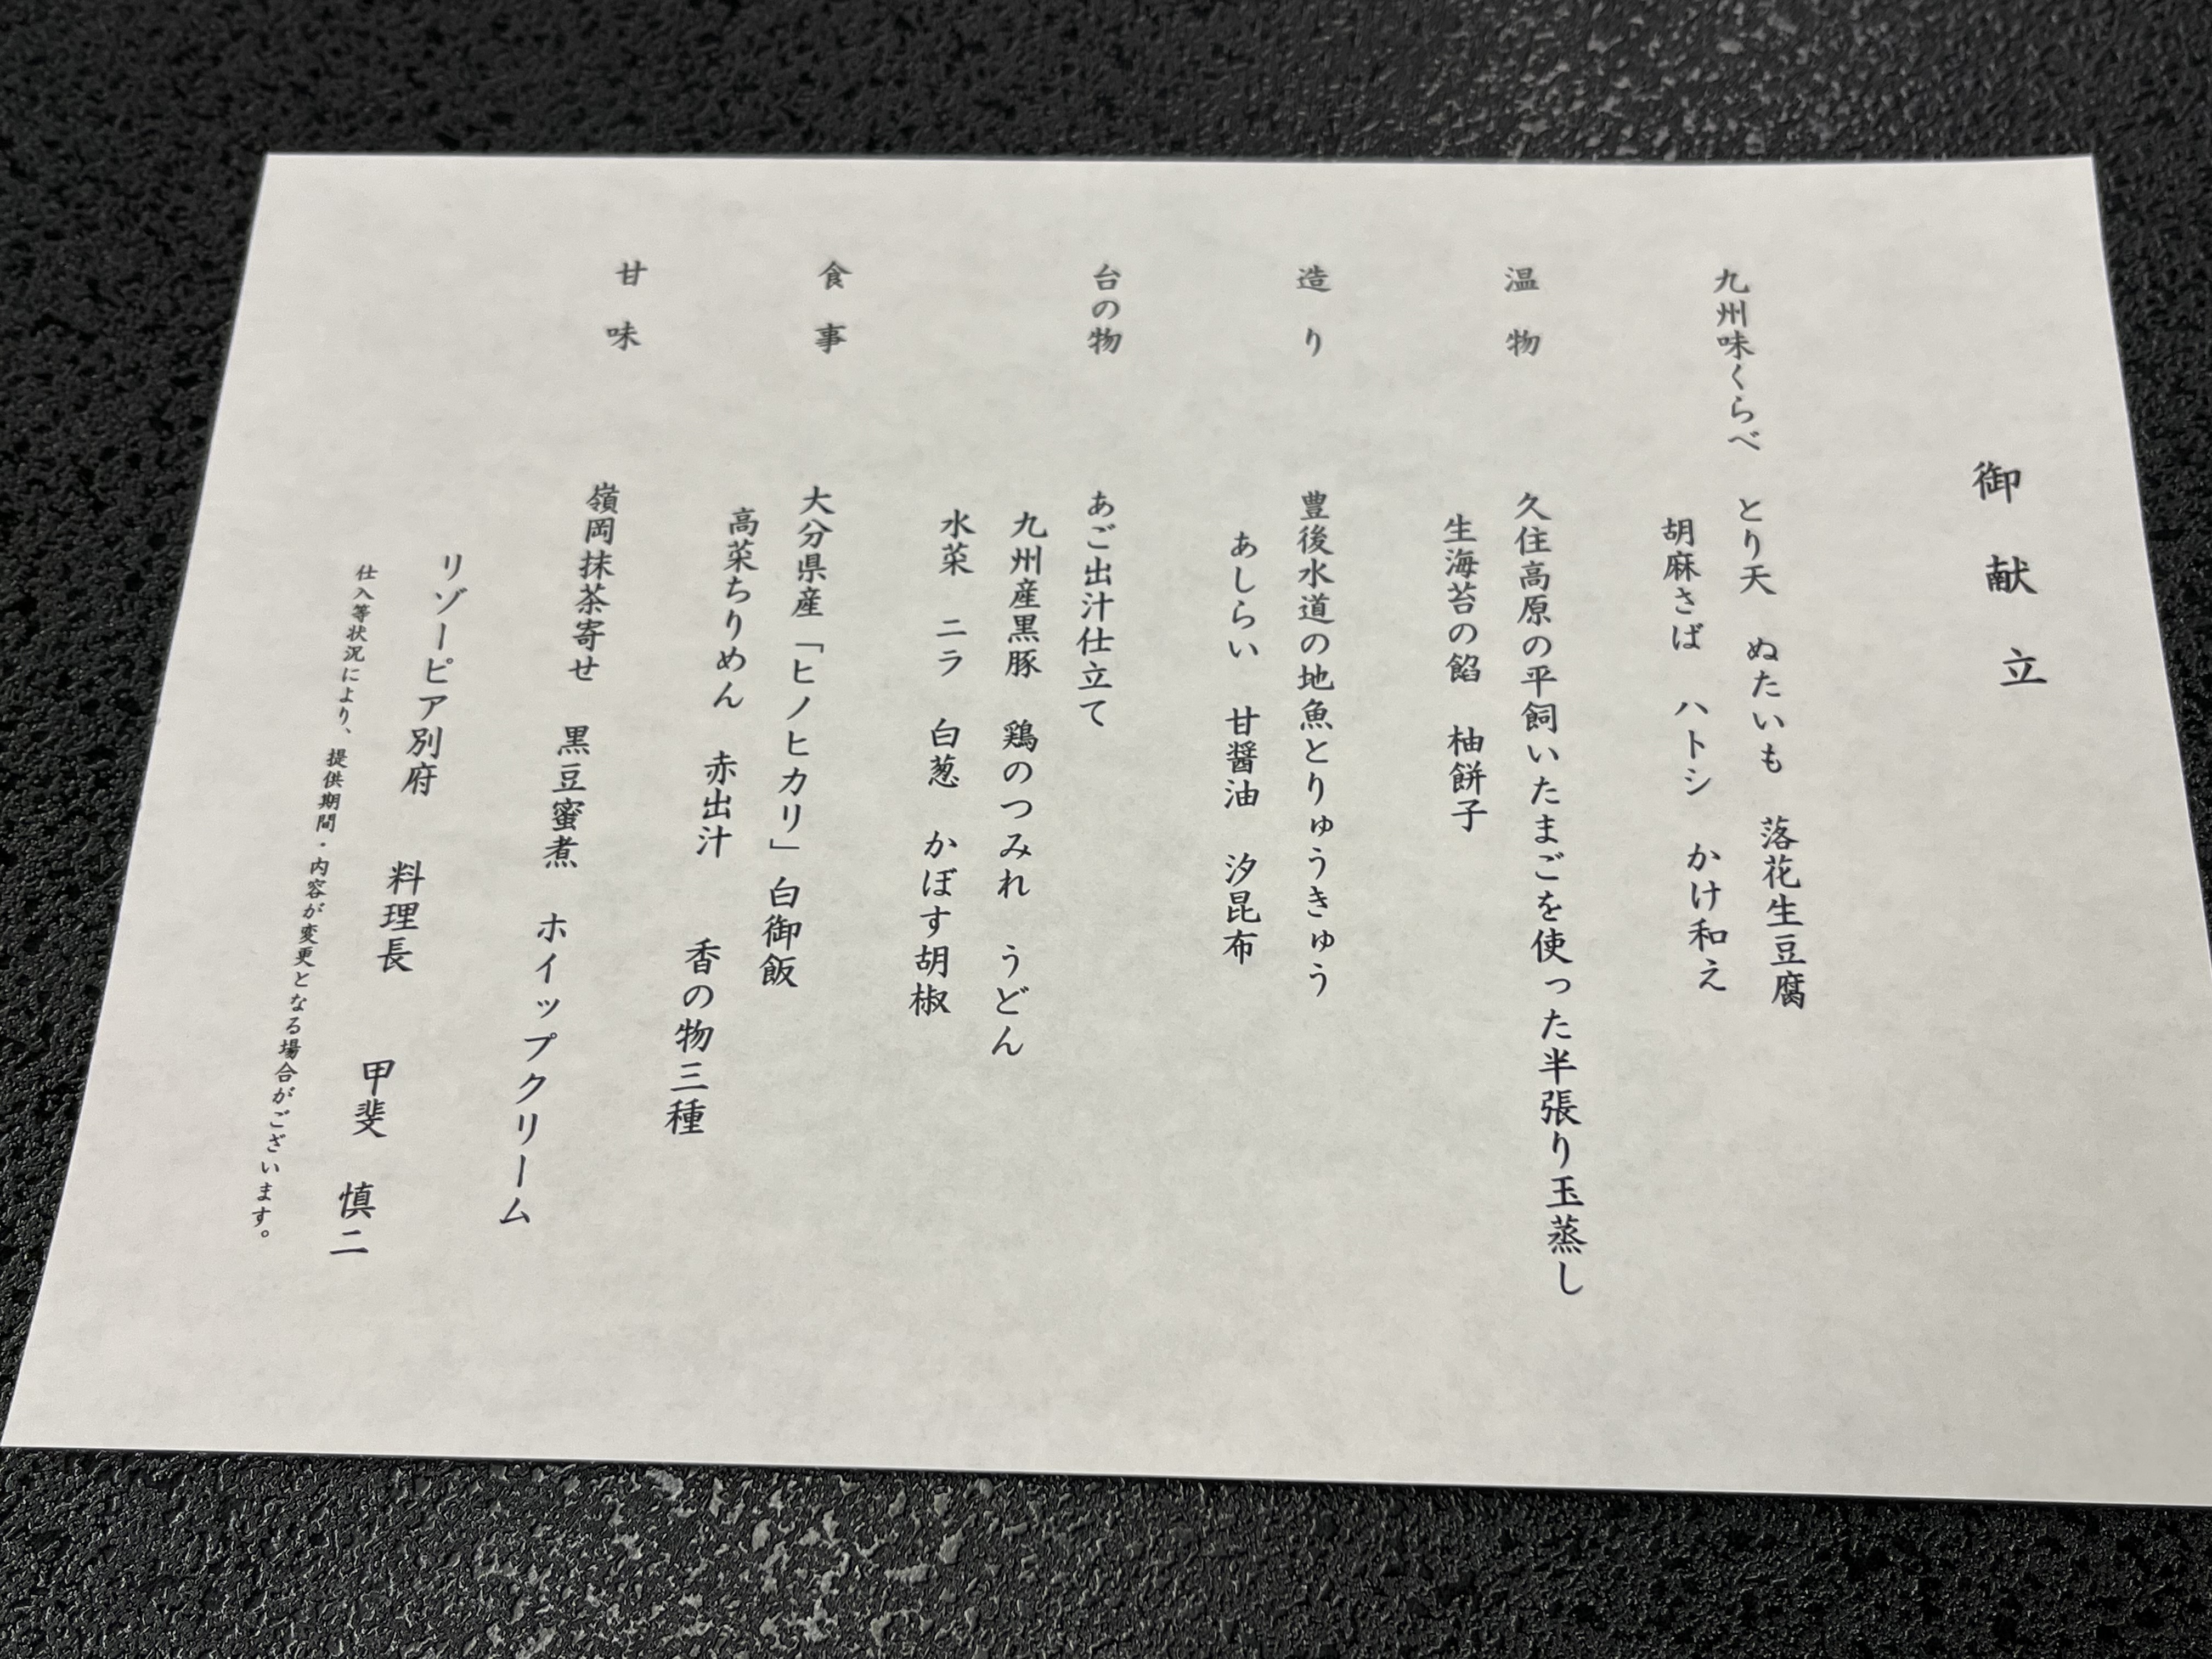 御献立
九州味くらべ　とり天　ぬたいも　落花生豆腐
胡麻さば　ハトシ　かけ和え
温物　久住高原の平飼いたまごを使った半張り玉蒸し
生海苔の餡　柚餅子
造り　豊後水道の地魚とりゅうきゅう
あしらい　甘醤油　汐昆布
台の物　あご出汁仕立て
九州産黒豚　鶏のつみれ　うどん
水菜　ニラ　白葱　かぼす胡椒
食事　大分県産「ヒノヒカリ」白御飯
高菜ちりめん　赤出汁　香の物三種
甘味　嶺岡抹茶寄せ　黒豆蜜煮　ホイップクリーム
リゾーピア別府　料理長　甲斐　慎二
仕入等状況により、提供期間・内容が変更となる場合がございます。